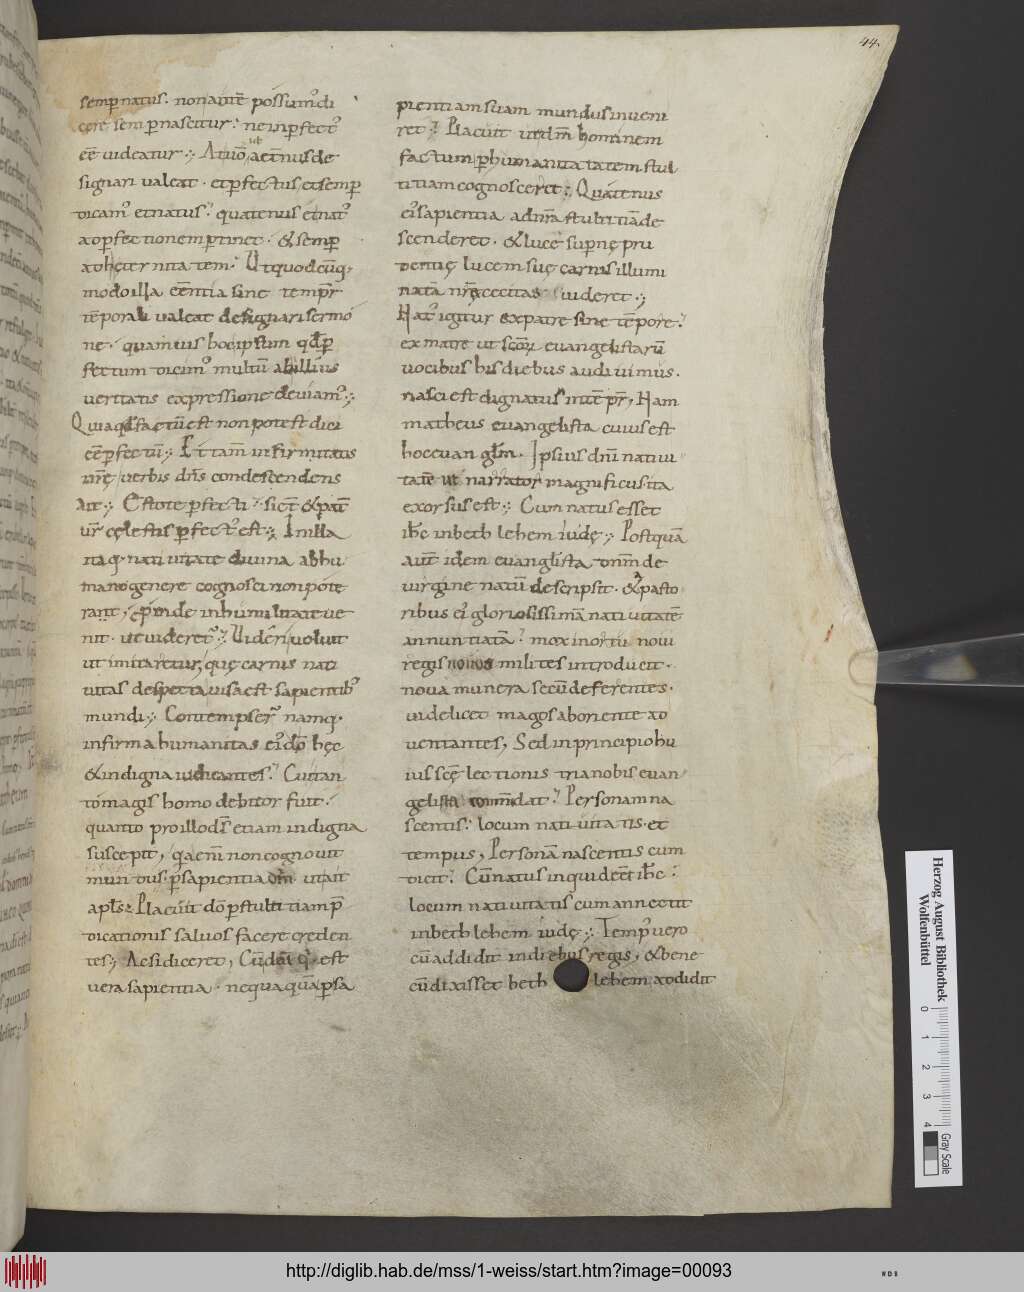 44.
semp natus. non autē possumꝰ di
cere semp nascitur. ne inpfectꝰ
eē uideatur. At uō ut aetnus de
signari ualeat. et pfectus, et semp
dicamꝰ et natus. quatenus et natꝰ
ad pfectionem ptinet. & semp
ad hęternitatem. Ut quocūq,
modo illa eēntia sine tempr
tēporali ualeat designari sermo
ne. quamuis hoc ipsum qđ p
fectum dicimꝰ multū ab illius
ueritatis expressione deuiamꝰ.
Quia qđ factū est non potest dici
eē pfectū. Et tam infirmitatis
nrę uerbis dns condescendens
Ait. Estote pfecti. sict & pat
ur cęlestis pfectꝰ est. In illa
itaq. natiuitate diuina ab hu
mano genere cognosci non pote
rant, pinde in humilitate ue
nit. ut uideretꝰ. Uideri uoluit
ut imitaretur, quę carnis nati
uitas despecta uisa est sapientibꝰ
mundi. Contempserꝰ namq.
infirma humanitas eiꝰ dō hęc
& indigna iudicantes. Cui tan
to magis homo debitor fuit.
quanto pro illo dš etiam indigna
suscepit, qa eni non cognouit
mundus p sapientia dm. ut ait
apls. Placuit dō p stultitiam p
dicationis saluos facere creden
tes. Ac si diceret, Cū dei q est
uera sapientia. nequaquā p sa
pientiam suam mundus inueni
ret. Placuit ut dm hominem
factum p humanitatatem stul
titiam cognosceret. Quatenus
eiꝰ sapientia ad nrā stultitiā de
scenderet. & luce supnę pru
dentię lucem suę carnis illumi
nata nrę cecitas uideret.
Natꝰ igitur ex patre sine tēpore.
ex matre ut scōꝝ euangelistarū
uocibus his diebus audiuimus.
nasci est dignatus in tēpr, Nam
matheus euangelista cuius est
hoc euanglm. Ipsius dni natiui
tatē ut narrator magnificus ita
exorsus est. Cum natus esset
ihc in bethlehem iudę. Postquā
aut idem euanglista dnm de
uirgine natū descripsit. & a pasto
ribus eiꝰ gloriosissimā natiuitatē
annuntiatā. mox in ortu noui
regis nouos milites introducit.
noua munera secū deferentes.
uidelicet magos ab oriente ad
uentantes, Sed in principio hu
ius scę lectionis tria nobis euan
gelista commdat. Personam na
scentis. locum natiuitatis. et
tempus, Personā nascentis cum
dicit. Cū natus inquid eēt ihc.
locum natiuitatis cum annectit
in bethlehem iudę. Tempꝰ uero
cū addidit in diebus regis, & bene
cū dixisset beth lehem addidit
Herzog August Bibliothek
Wolfenbüttel
0 1 2 3 4
Gray Scale
http://diglib.hab.de/mss/1-weiss/start.htm?image=00093